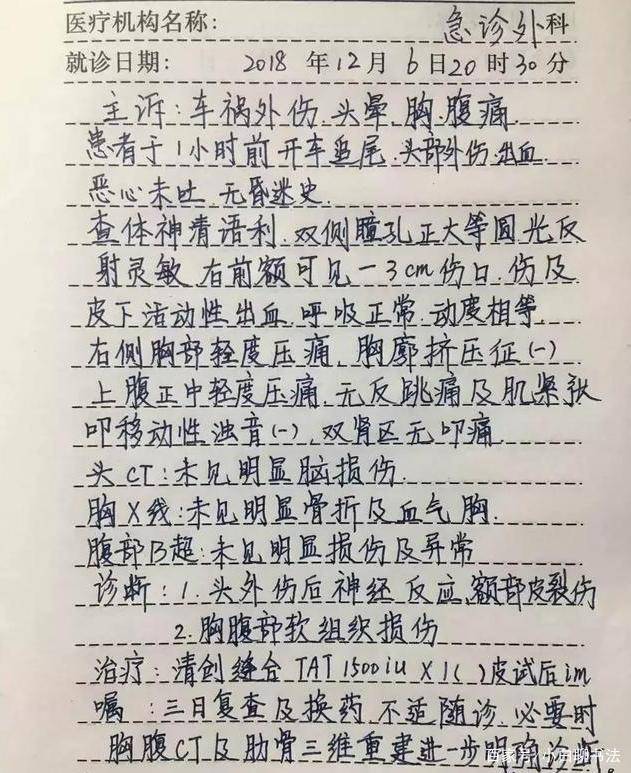 医疗机构名称: 急诊外科
就诊日期: 2018 年 12 月 6 日 20 时 30 分
主诉:车祸外伤.头晕.胸.腹痛
患者于1小时前开车追尾.头部外伤.出血
恶心未吐.无昏迷史.
查体神清语利.双侧瞳孔正大等圆光反
射灵敏.右前额可见一3cm伤口.伤及
皮下活动性出血.呼吸正常.动度相等.
右侧胸部轻度压痛.胸廓挤压征(-)
上腹正中轻度压痛.无反跳痛及肌紧张
叩移动性浊音(-).双肾区无叩痛
头CT:未见明显脑损伤.
胸X线:未见明显骨折及血气胸.
腹部B超:未见明显损伤及异常
诊断:1.头外伤后神经反应.额部皮裂伤
2.胸腹部软组织损伤
治疗:清创缝合 TAT 1500iu X1( )皮试后im
嘱:三日复查及换药.不适随诊.必要时
胸腹CT及肋骨三维重建进一步明确诊断
百家号/小白聊书法